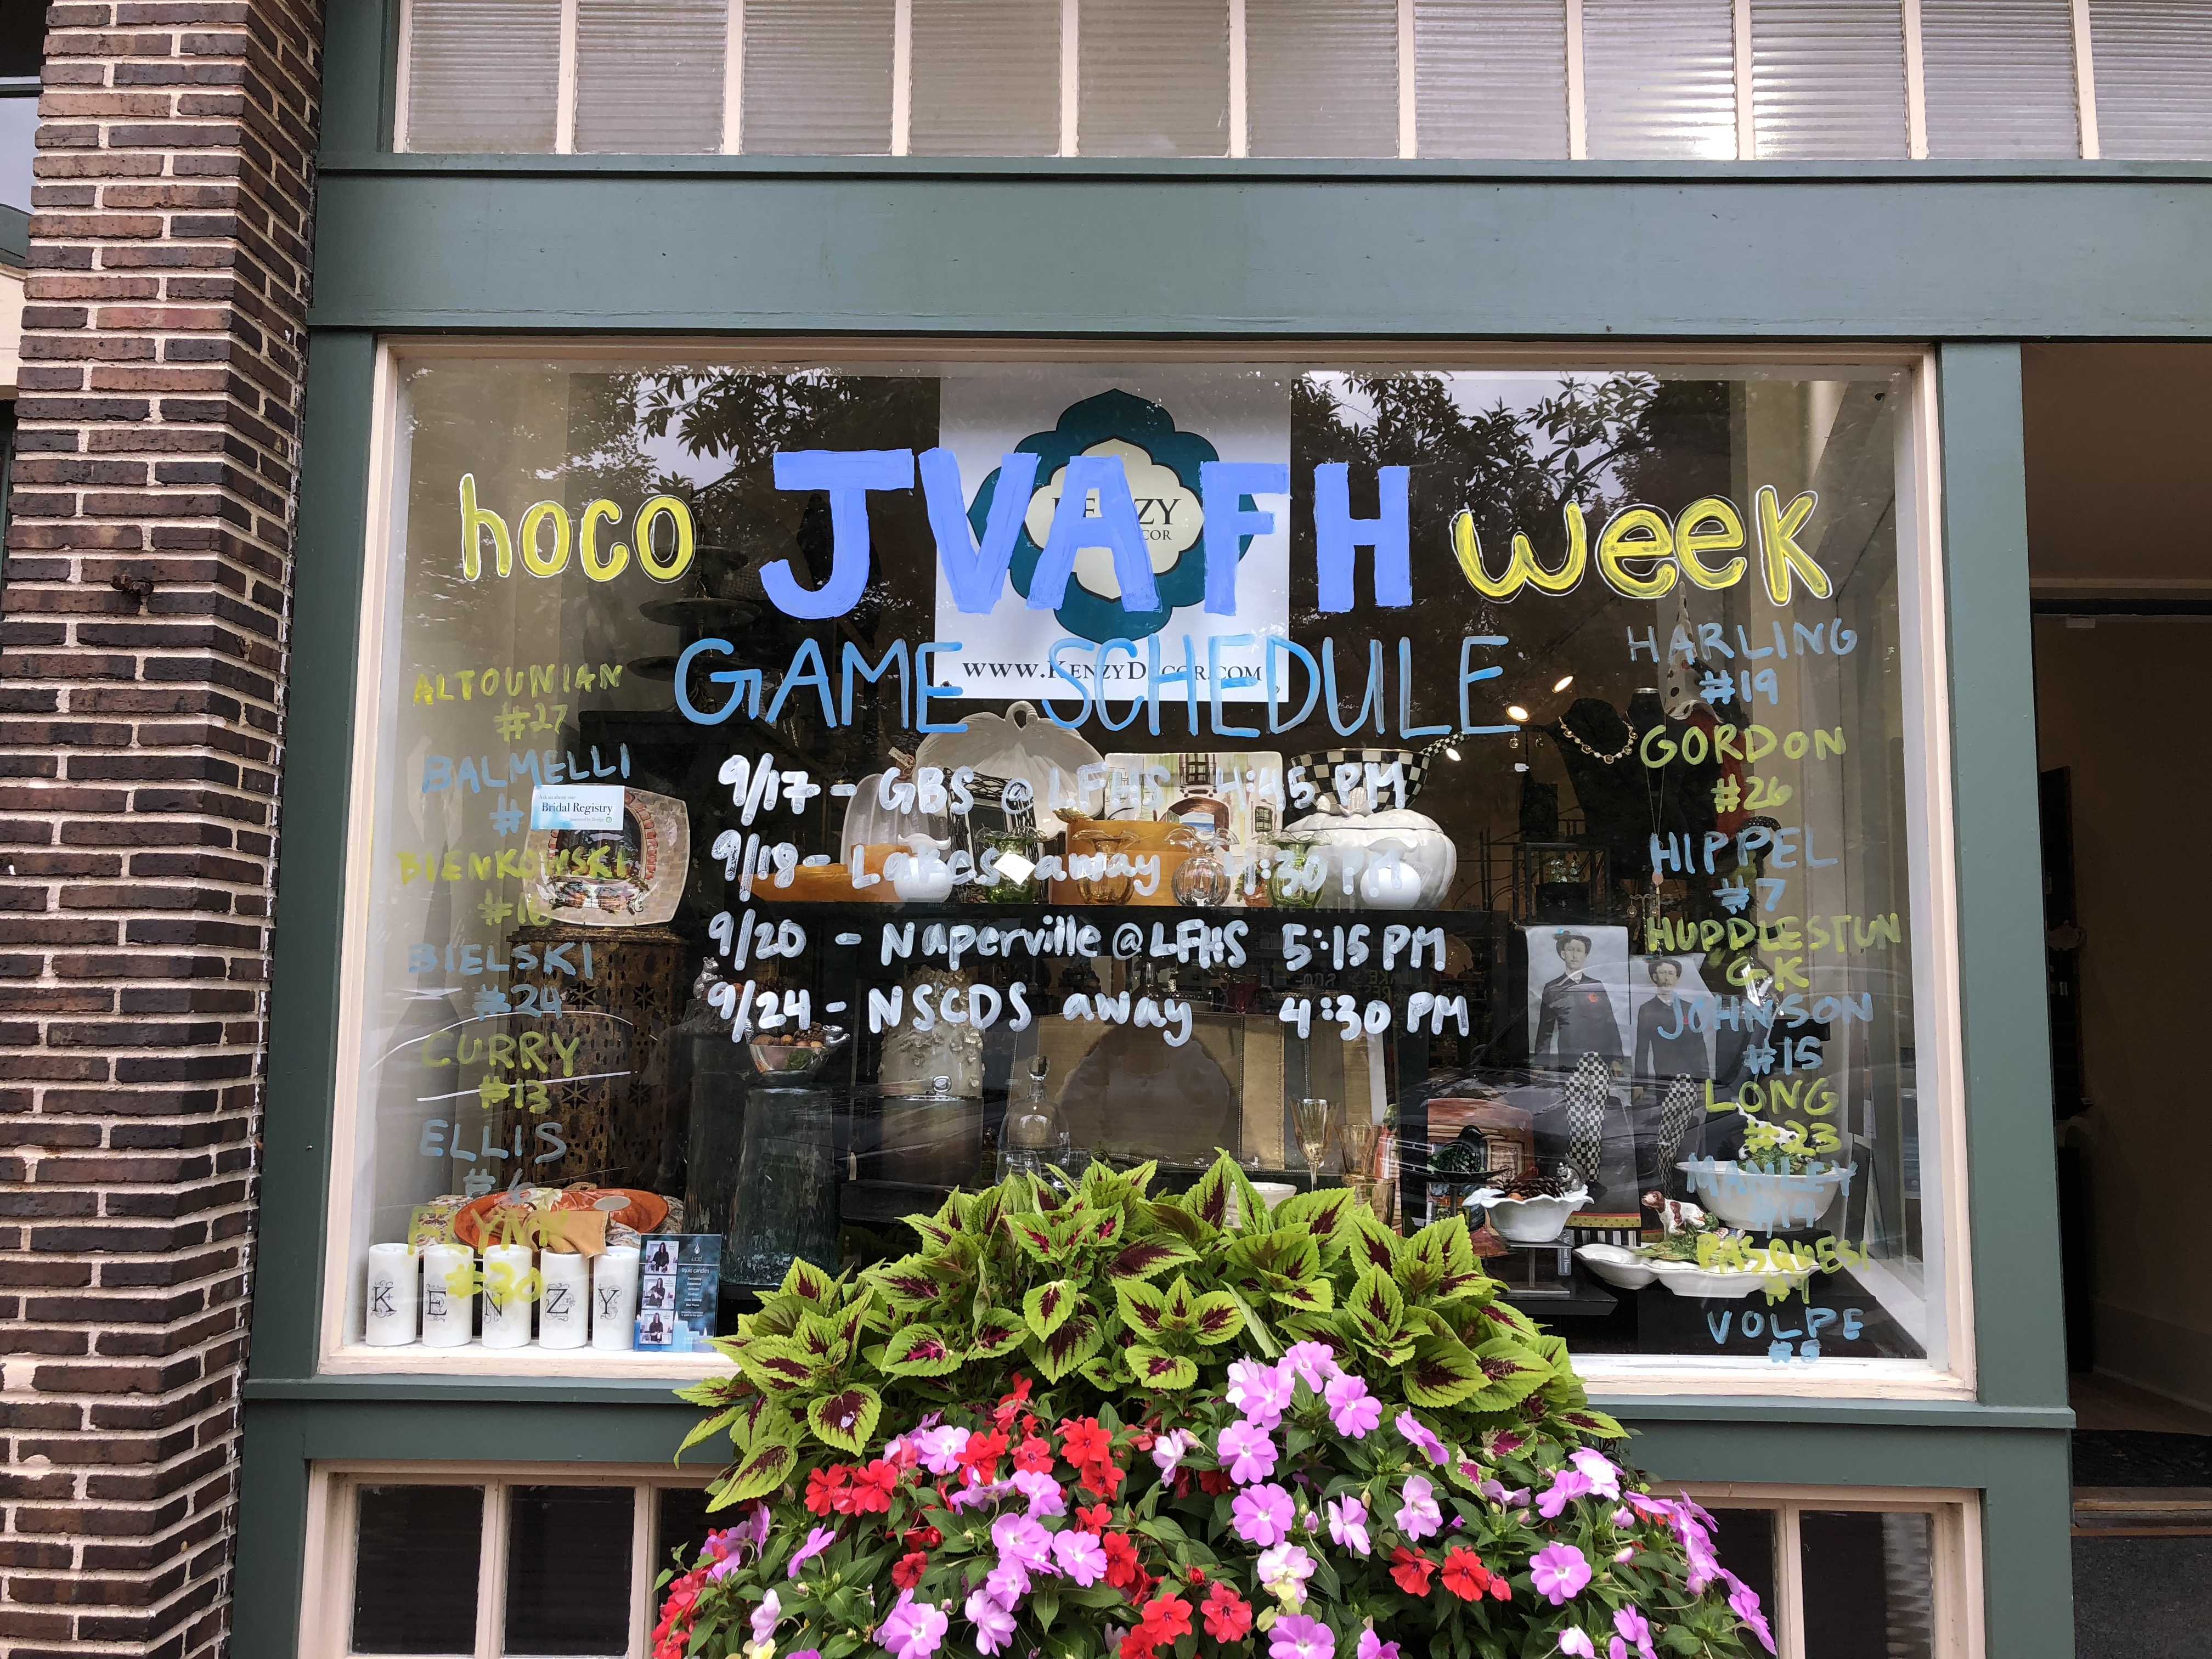 hoco JVA FH week
GAME SCHEDULE
WWW.KENZYDECOR.COM
9/17 - GBS @ LFHS 4:45 PM
9/18 - Lakes away 4:30 PM
9/20 - Naperville @ LFHS 5:15 PM
9/24 - NSCDS away 4:30 PM
ALTOUNIAN
#27
BALMELLI
#
Bridal Registry
BIENKOWSKI
BIELSKI
#24
CURRY
#13
ELLIS
#6
FLYNN
#30
KENZY
HARLING
#19
GORDON
#26
HIPPEL
#7
HUDDLESTUN
GK
JOHNSON
#15
LONG
#23
MANLEY
PASQUESI
VOLPE